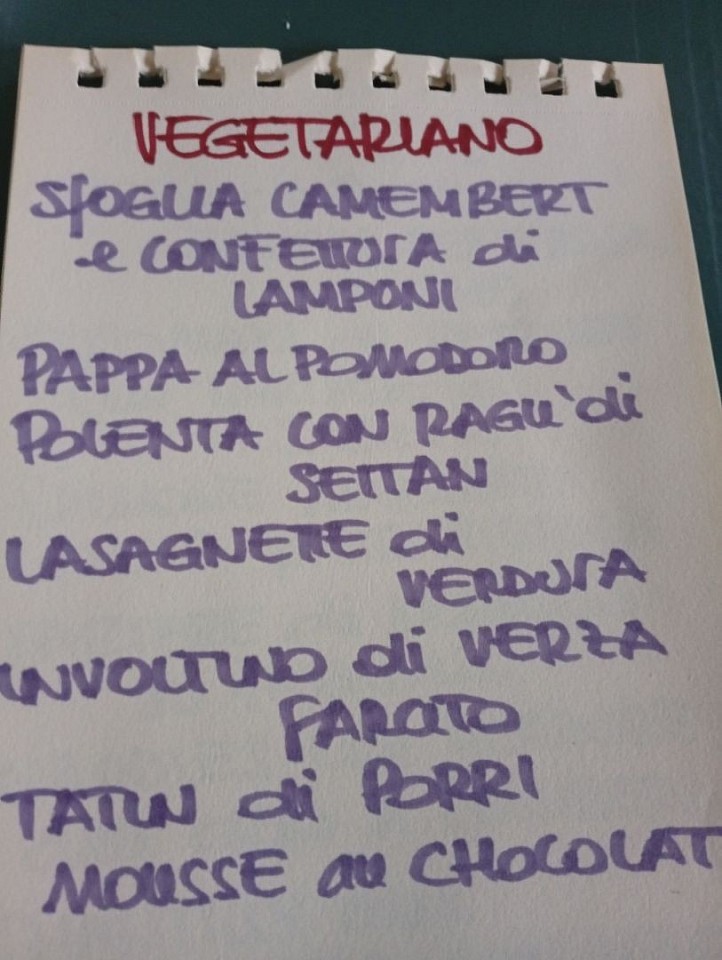 VEGETARIANO
SfOGLIA CAMEMBERT
e CONFETTURA di
LAMPONI
PAPPA AL POMODORO
POLENTA CON RAGU' di
SEITAN
LASAGNETTE di
VERDURA
INVOLTINO di VERZA
FARCITO
TATIN di PORRI
MOUSSE au CHOCOLAT